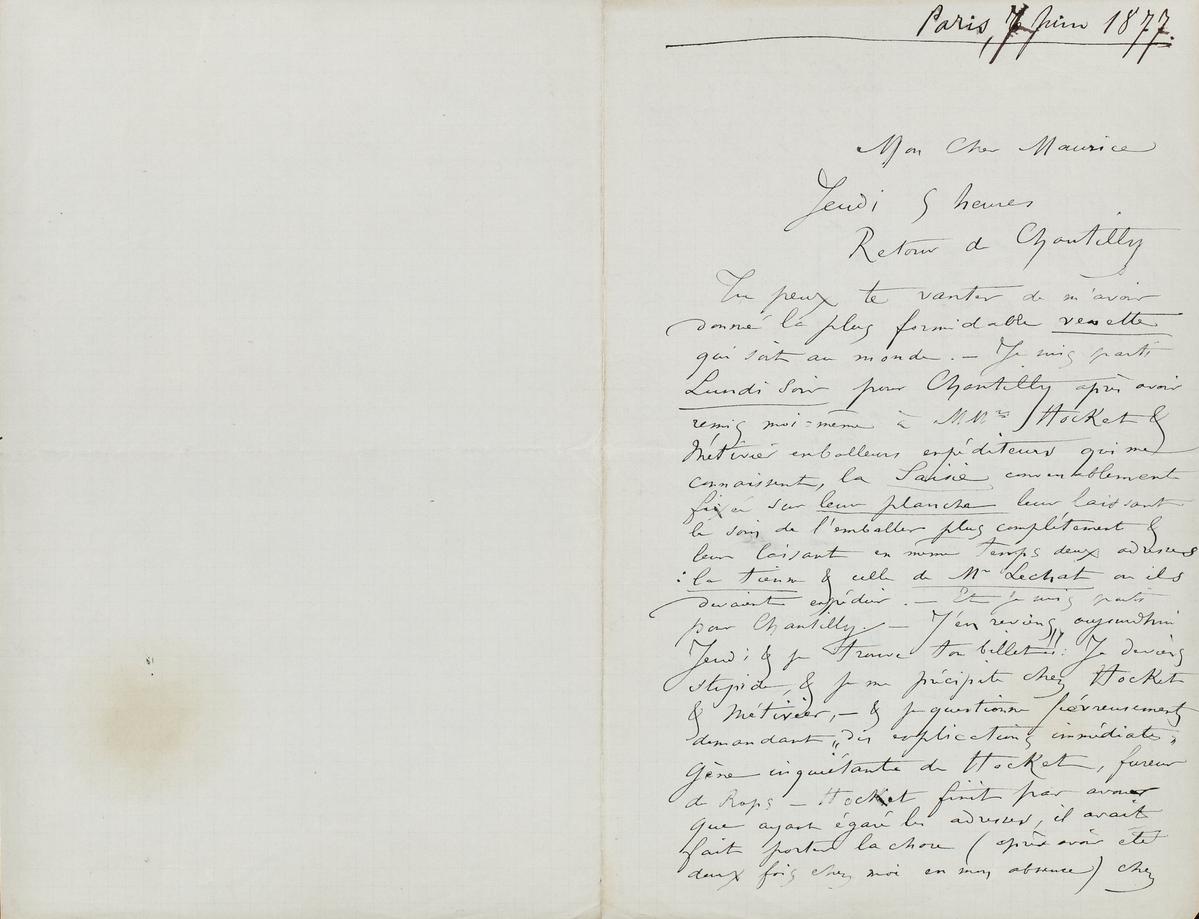 Paris, 7 Juin 1877.
Mon Cher Maurice
Jeudi 5 heures
Retour de Chantilly
Tu peux te vanter de m'avoir
donné la plus formidable venette
qui soit au monde. — Je suis parti
Lundi Soir pour Chantilly après avoir
remis moi-même à MMrs Hocket &
Métivier emballeurs expéditeurs qui me
connaissent, la Saisie convenablement
fixée sur leur planche leur laissant
le soin de l'emballer plus complétement &
leur laissant en même temps deux adresses
: la tienne & celle de Mr Lechat ou ils
devaient expédier. — Et je suis parti
pour Chantilly. — J'en reviens aujourdhui
Jeudi & je trouve ton billet!! : Je deviens
stupide, & je me précipite chez Hocket
& Métivier, — & je questionne fiévreusement
demandant „des explications immédiates„
Gêne inquiétante de Hocket, fureur
de Rops — Hocket finit par avouer
que ayant égaré les adresses, il avait
fait porter la chose (après avoir été
deux fois chez moi en mon absence) chez